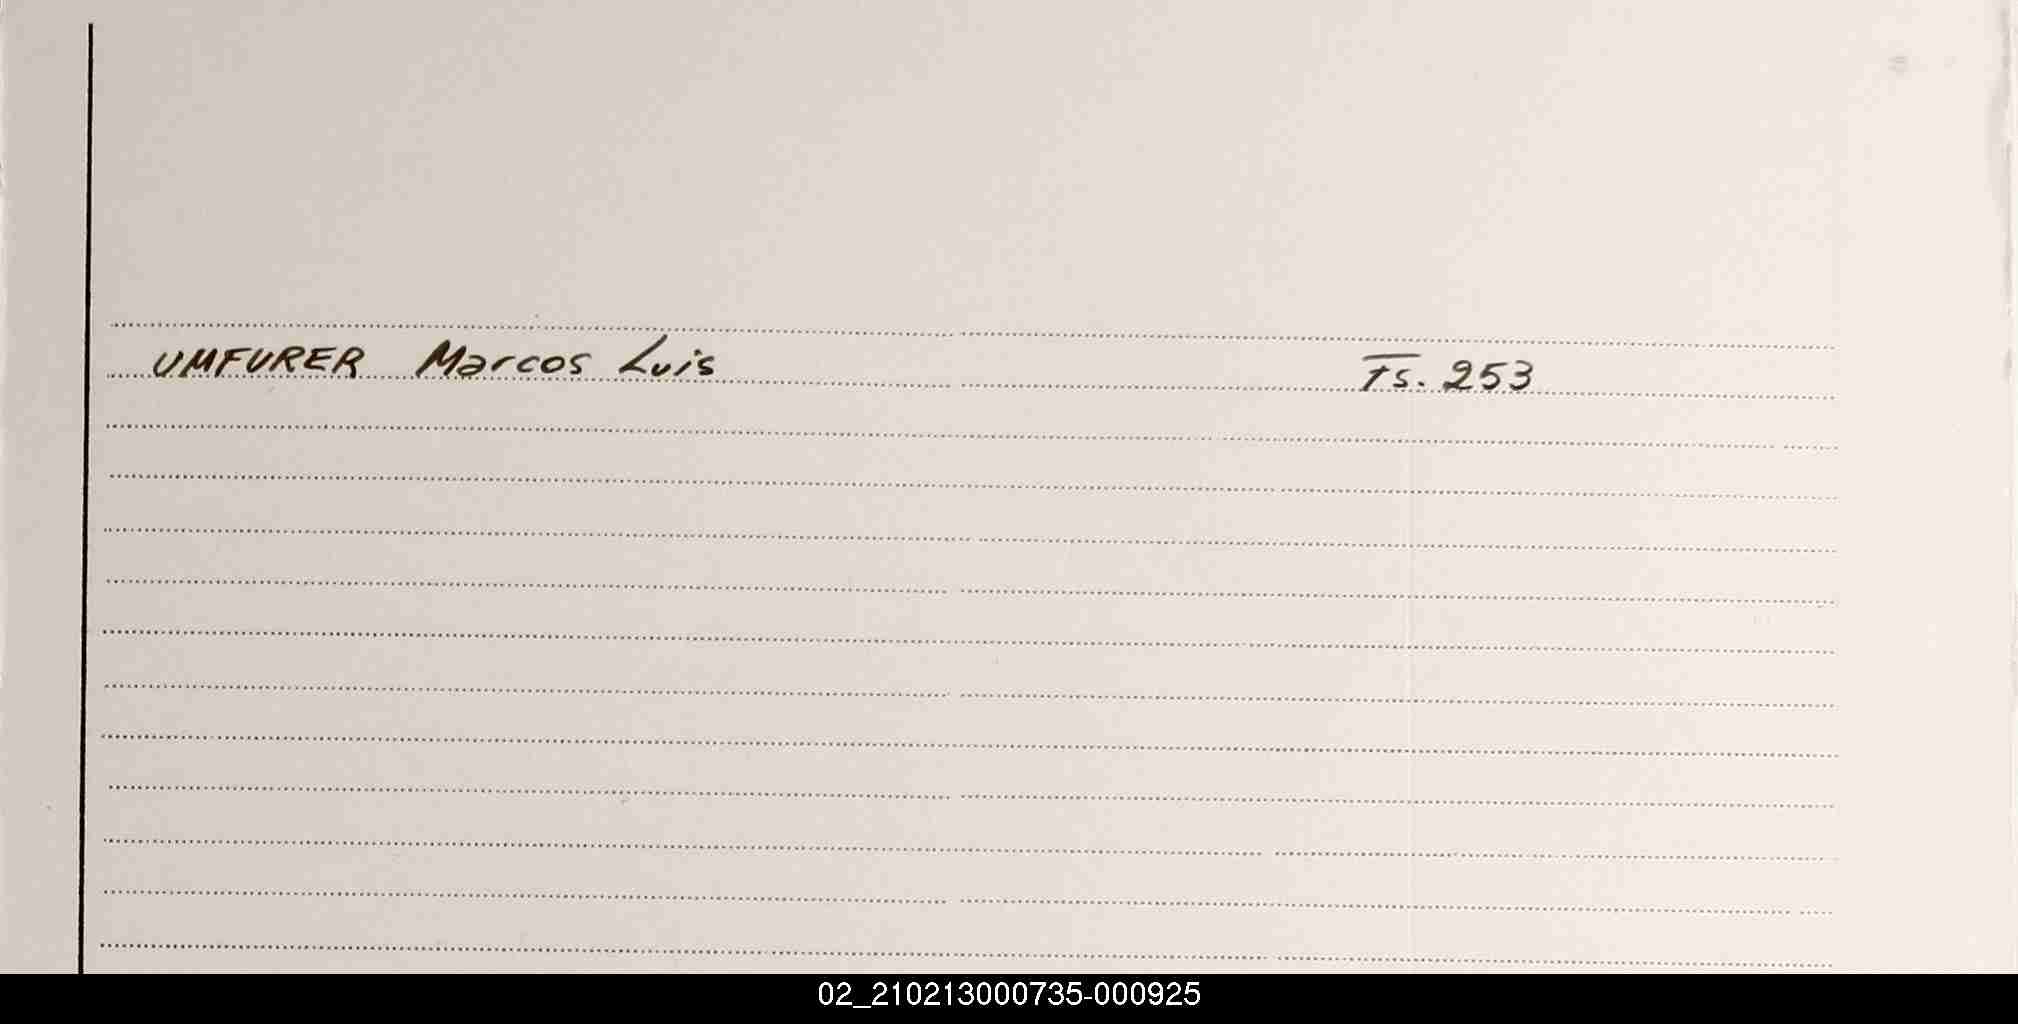 UMFURER Marcos Luis Fs. 253
02_210213000735-000925